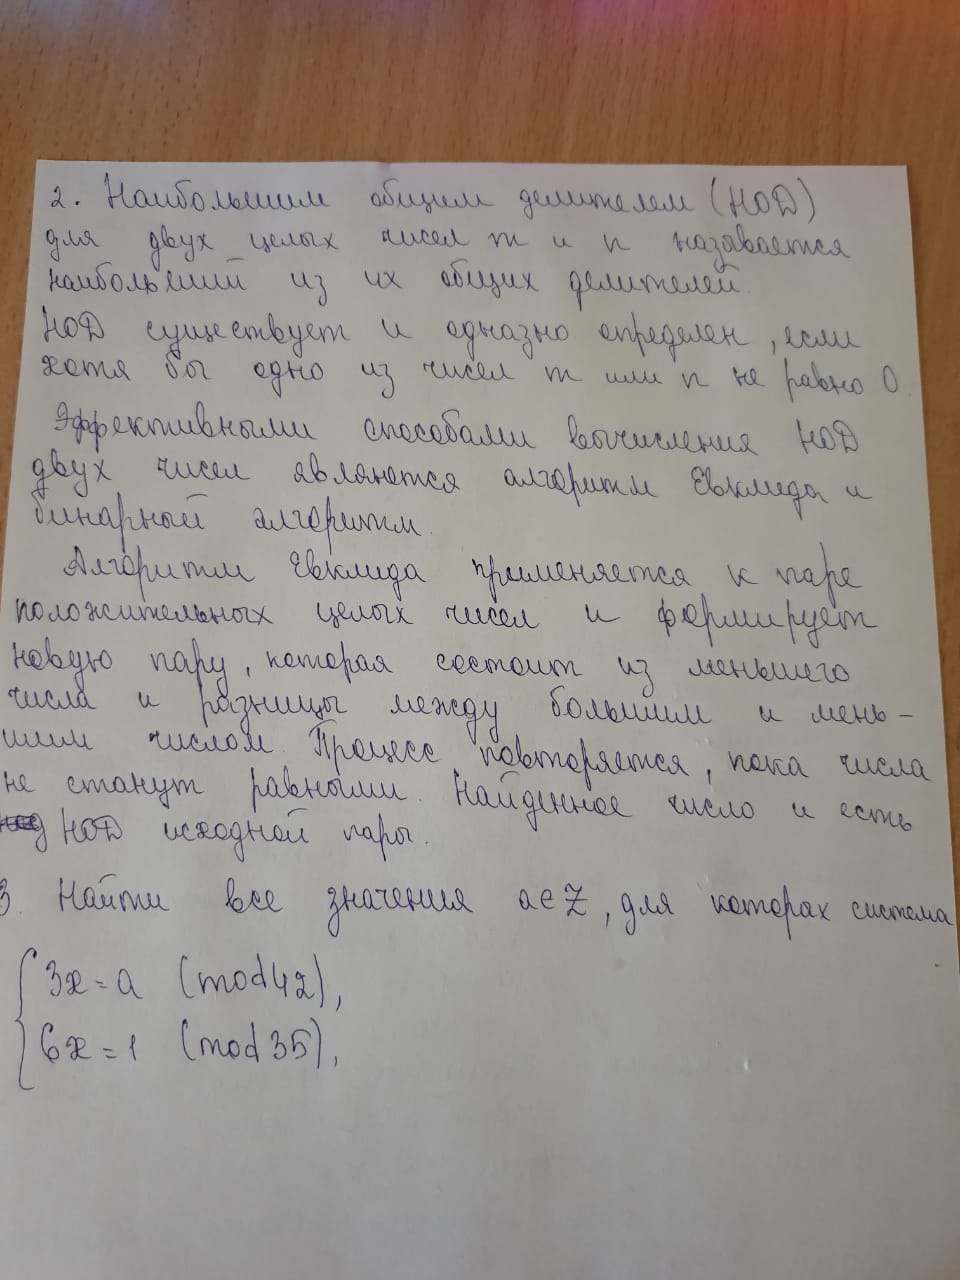 2. Наибольшим общим делителем (НОД)
для двух целых чисел m и n называется
наибольший из их общих делителей.
НОД существует и одназно определен, если
хотя бы одно из чисел m или n не равно 0.
Эффективными способами вычисления НОД
двух чисел являются алгоритм Евклида и
бинарный алгоритм.
Алгоритм Евклида применяется к паре
положительных целых чисел и формирует
новую пару, которая состоит из меньшего
числа и разницы между большим и мень-
шим числом. Процесс повторяется, пока числа
не станут равными. Найденное число и есть
НОД исходной пары.
3. Найти все значения a∈Z, для которах система
3x = a (mod 42),
6x = 1 (mod 35),